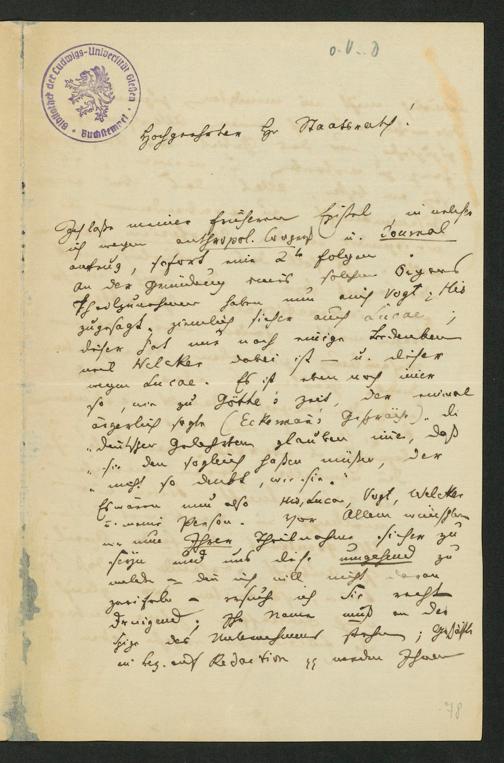 o. V. D
Bibliothek der Ludwigs-Universität Gießen
Buchstempel
Hochgeehrter Hr Staatsrath!
Ich lasse meiner früheren Epistel, in welcher
ich wegen anthropol. Congreß u. Journal
anfrug, sofort eine 2te folgen.
An der Gründung eines solchen Organs
Theil zunehmen haben nun auch Vogt, His
zugesagt, ziemlich sicher auch Lucae;
dieser hat nur noch einige Bedenken
weil Welcker dabei ist – u. dieser
wegen Lucae. Es ist eben noch immer
so, wie zu Göthe's Zeit, der einmal
ärgerlich sagte (Eckerman's Gespräche) "die
"deutschen Gelehrten glauben immer, daß
"sie den sogleich hassen müßten, der
"nicht so denkt, wie sie."
Es wären nun also His, Lucae, Vogt, Welcker
u. meine Person. Vor Allem wünschten
wir nun Ihrer Theilnahme sicher zu
seyn und uns dieß umgehend zu
melden – denn ich will nicht daran
zweifeln – ersuche ich Sie recht
dringend. Ihr Name muß an der
Spitze des Unternehmens stehen; Geschäfte
in bez. auf Redaction werden Ihnen
78